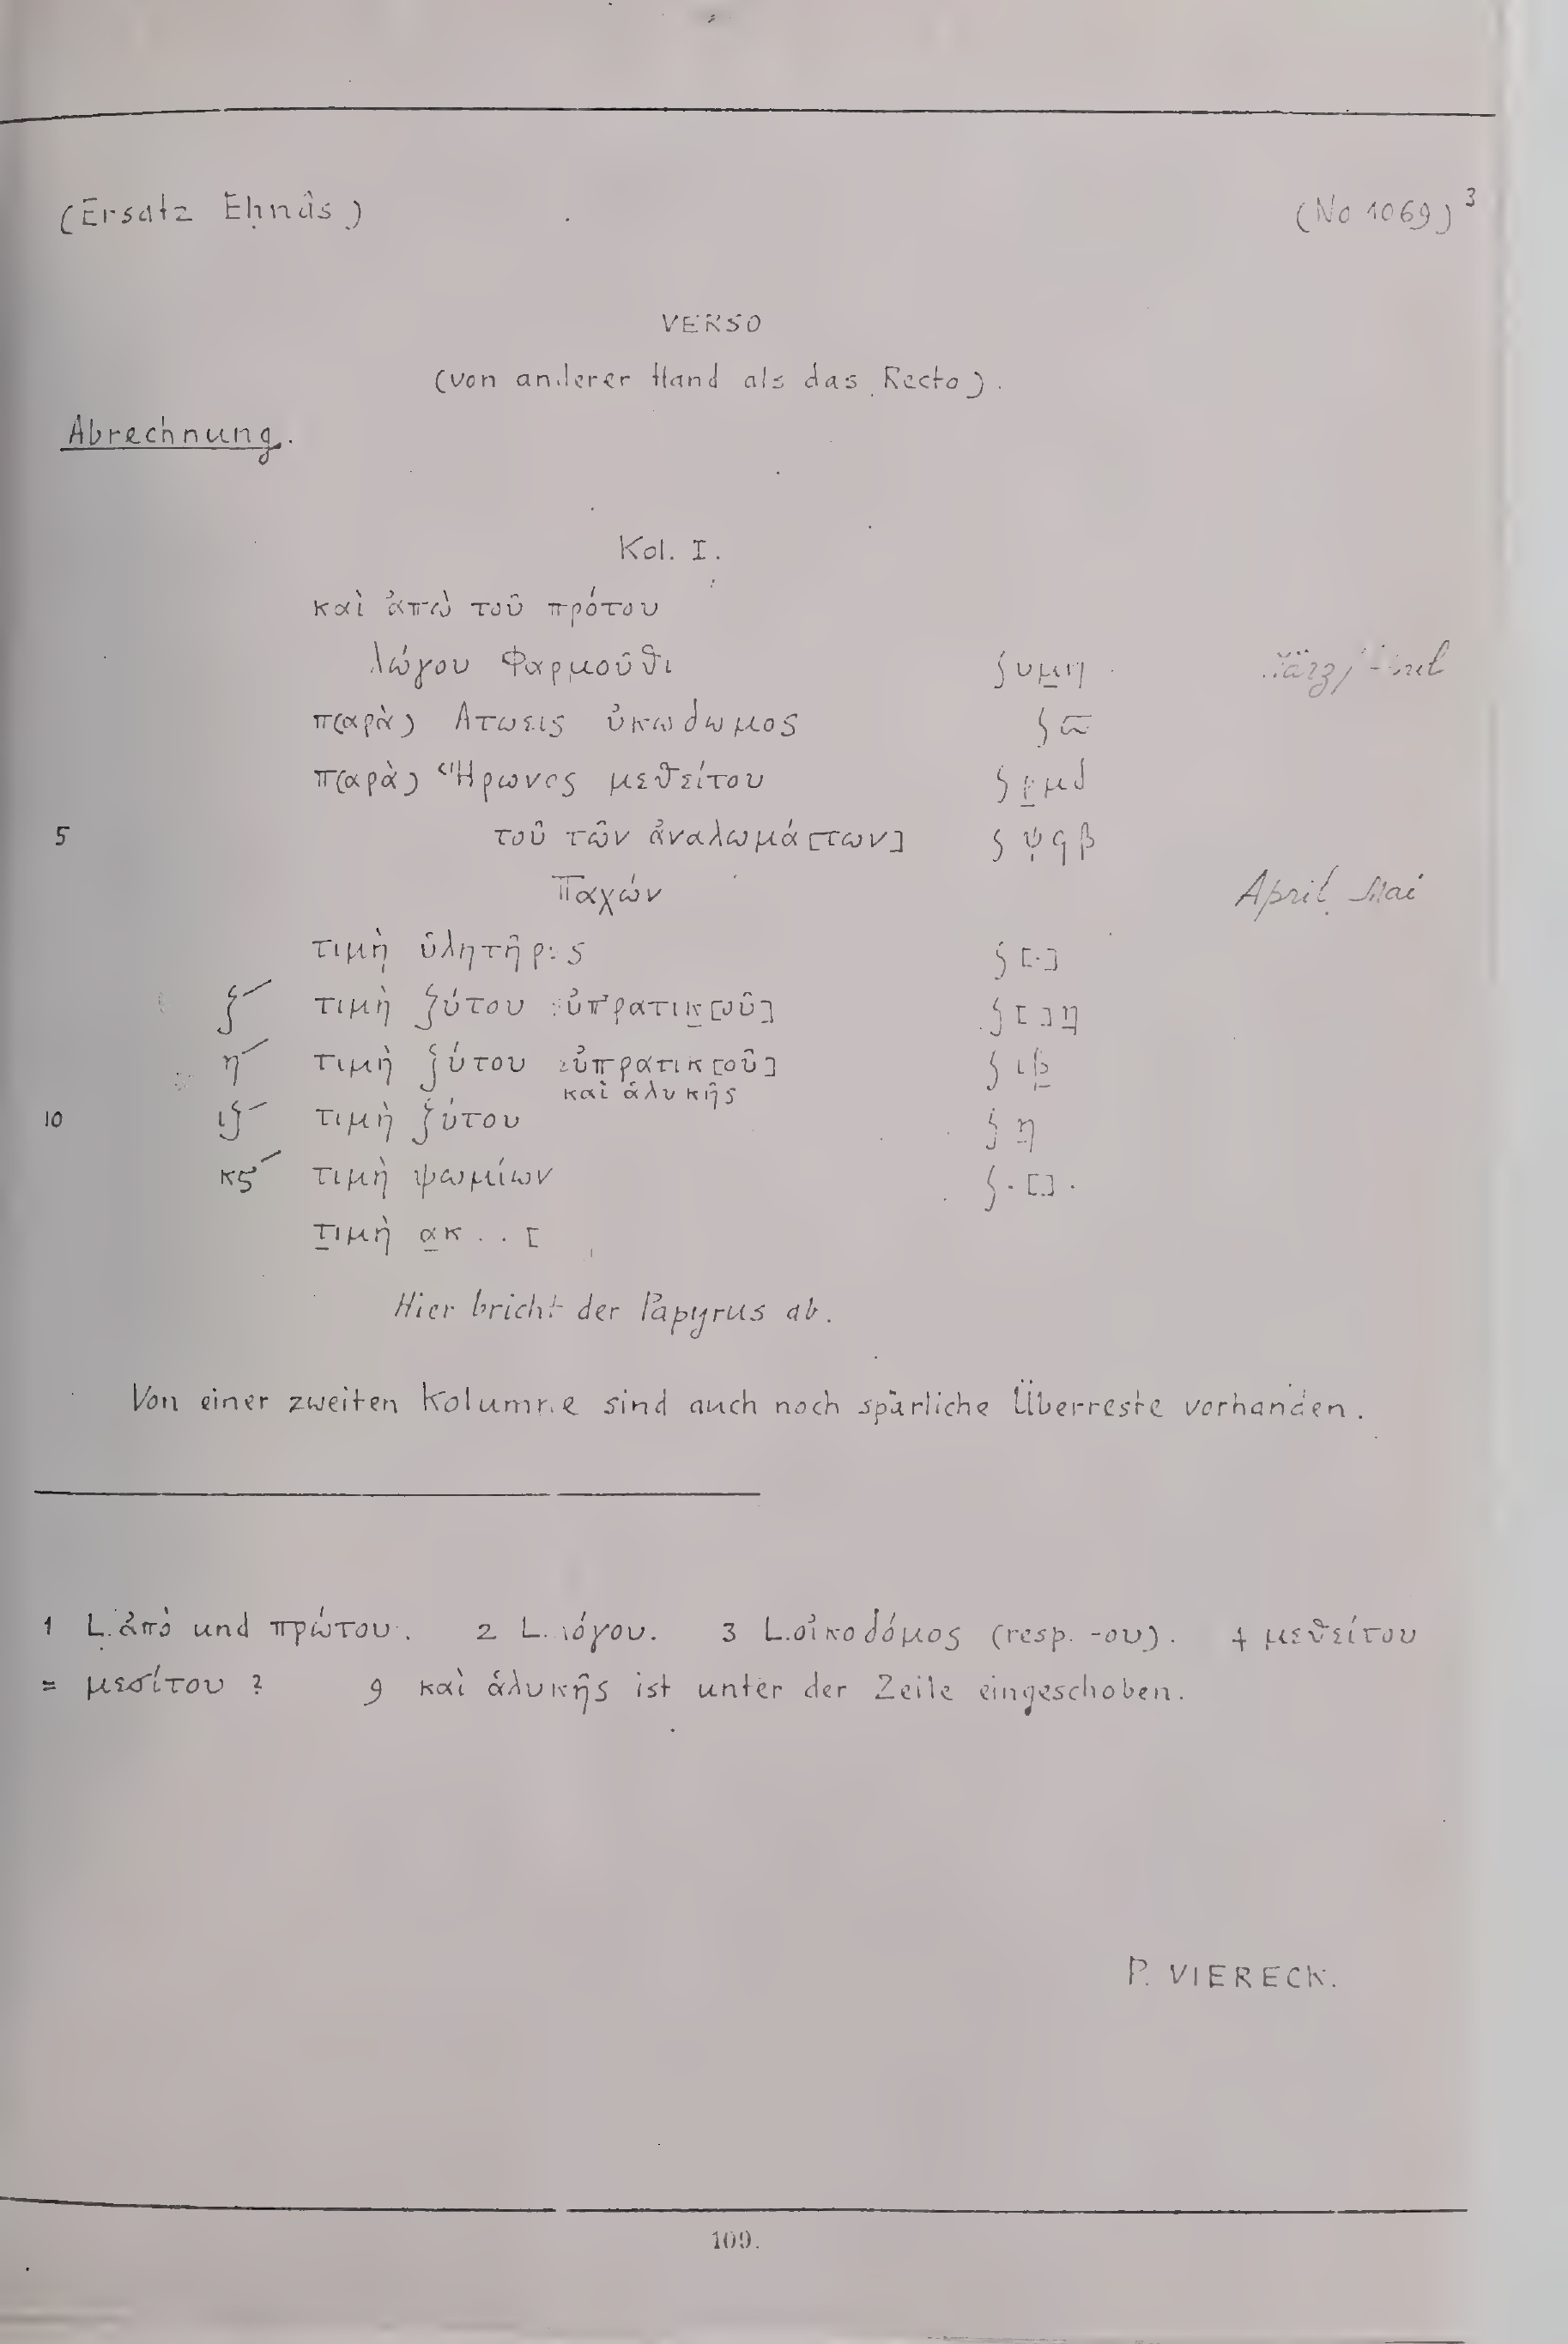 (Ersatz Eḥnâs) (No 1069)³
VERSO
(von anderer Hand als das Recto).
Abrechnung.
Kol. I.
καὶ ἀπὼ τοῦ πρότου
λώγου Φαρμοῦθι ʃ υμ̣η
π(αρὰ) Ατωεις ὐκωδωμος ʃ ϖ
π(αρὰ) Ἥρωνος μεθείτου ʃ ρ̣μδ
5 τοῦ τῶν ἀναλωμά[των] ʃ ψ̣ϥβ
Παχών April Mai
τιμὴ̣ ὑλητῆρος ʃ [.]
ζ´ τιμὴ ζύτου εὐπρατικ̣[οῦ] ʃ [ ]η̣
η´ τιμὴ ζύτου εὐπρατικ[οῦ] ʃ ιβ̣
καὶ ἁλυκῆς
10 ιζ´ τιμὴ ζύτου ʃ η̣
κϛ´ τιμὴ ψωμίων ʃ . [.] .
τ̣ιμὴ α̣κ . . [
Hier bricht der Papyrus ab.
Von einer zweiten Kolumne sind auch noch spärliche Überreste vorhanden.
1 L. ἀπὸ und πρώτου. 2 L. λόγου. 3 L. οἰκοδόμος (resp. -ου). 4 μεθείτου
= μεσίτου ? 9 καὶ ἁλυκῆς ist unter der Zeile eingeschoben.
P. VIERECK.
109.